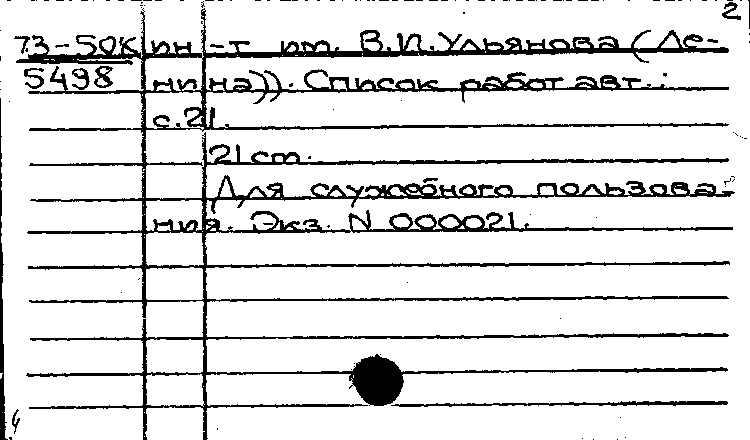 2
73-50К ин-т им. В.И.Ульянова (Ле-
5498 нина)). Список работ авт.:
с.21.
21 cm.
Для служебного пользова-
ния. Экз. N 000021.